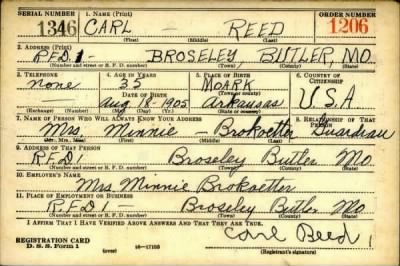 SERIAL NUMBER 1. NAME (Print) ORDER NUMBER
1346 CARL — REED 1206
(First) (Middle) (Last)
2. ADDRESS (Print)
RFD 1- BROSELEY BUTLER, MO.
(Number and street or R. F. D. number) (Town) (County) (State)
3. TELEPHONE 4. AGE IN YEARS 5. PLACE OF BIRTH 6. COUNTRY OF CITIZENSHIP
none 35 MOARK
DATE OF BIRTH (Town or county)
Aug 18-1905 Arkansas U.S.A
(Exchange) (Number) (Mo.) (Day) (Yr.) (State or country)
7. NAME OF PERSON WHO WILL ALWAYS KNOW YOUR ADDRESS 8. RELATIONSHIP OF THAT PERSON
Mrs. Minnie — Brokoetter Guardian
(Mr., Mrs., Miss) (First) (Middle) (Last)
9. ADDRESS OF THAT PERSON
R.F.D 1 Broseley Butler Mo.
(Number and street or R. F. D. number) (Town) (County) (State)
10. EMPLOYER'S NAME
Mrs. Minnie Brokoetter
11. PLACE OF EMPLOYMENT OR BUSINESS
R.F.D 1- Broseley Butler Mo.
(Number and street or R. F. D. number) (Town) (County) (State)
I AFFIRM THAT I HAVE VERIFIED ABOVE ANSWERS AND THAT THEY ARE TRUE.
Carl Reed
REGISTRATION CARD
D. S. S. Form 1 (over) 16—17105 (Registrant's signature)